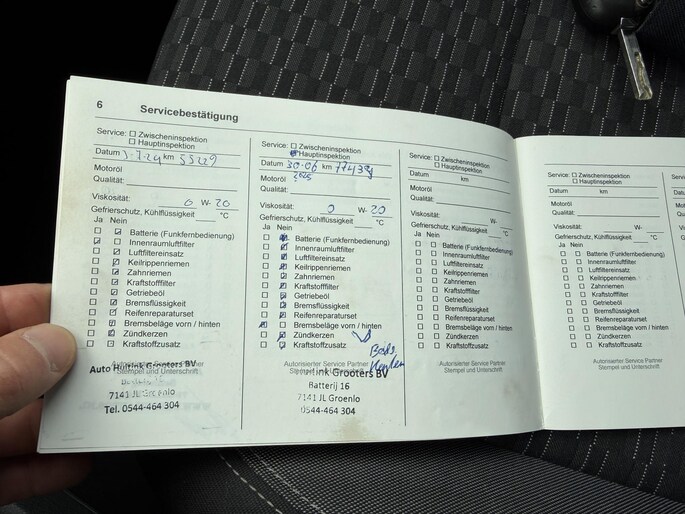 6 Servicebestätigung
Service: ☐ Zwischeninspektion
☐ Hauptinspektion
Datum 3-7-24 km 55229
Motoröl
Qualität:
Viskosität: 0 W- 20
Gefrierschutz, Kühlflüssigkeit °C
Ja Nein
Batterie (Funkfernbedienung)
Innenraumluftfilter
Luftfiltereinsatz
Keilrippenriemen
Zahnriemen
Kraftstofffilter
Getriebeöl
Bremsflüssigkeit
Reifenreparaturset
Bremsbeläge vorn / hinten
Zündkerzen
Kraftstoffzusatz
Autorisierter Service Partner
Stempel und Unterschrift
Auto Hulink Grooters BV
7141 JL Groenlo
Tel. 0544-464 304
Service: ☐ Zwischeninspektion
Hauptinspektion
Datum 30-06 km 77439
2025
Motoröl
Qualität:
Viskosität: 0 W- 20
Gefrierschutz, Kühlflüssigkeit °C
Ja Nein
Batterie (Funkfernbedienung)
Innenraumluftfilter
Luftfiltereinsatz
Keilrippenriemen
Zahnriemen
Kraftstofffilter
Getriebeöl
Bremsflüssigkeit
Reifenreparaturset
Bremsbeläge vorn / hinten
Zündkerzen
Kraftstoffzusatz
Autorisierter Service Partner
Stempel und Unterschrift
Grooters BV
Batterij 16
7141 JL Groenlo
0544-464 304
Service: ☐ Zwischeninspektion
☐ Hauptinspektion
Datum km
Motoröl
Qualität:
Viskosität: W-
Gefrierschutz, Kühlflüssigkeit °C
Ja Nein
Batterie (Funkfernbedienung)
Innenraumluftfilter
Luftfiltereinsatz
Keilrippenriemen
Zahnriemen
Kraftstofffilter
Getriebeöl
Bremsflüssigkeit
Reifenreparaturset
Bremsbeläge vorn / hinten
Zündkerzen
Kraftstoffzusatz
Autorisierter Service Partner
Stempel und Unterschrift
Service: ☐ Zwischeninspektion
☐ Hauptinspektion
Datum km
Motoröl
Qualität:
Viskosität: W-
Gefrierschutz, Kühlflüssigkeit °C
Ja Nein
Batterie (Funkfernbedienung)
Innenraumluftfilter
Luftfiltereinsatz
Keilrippenriemen
Zahnriemen
Kraftstofffilter
Getriebeöl
Bremsflüssigkeit
Reifenreparaturset
Bremsbeläge vorn / hinten
Zündkerzen
Kraftstoffzusatz
Autorisierter Service Partner
Stempel und Unterschrift